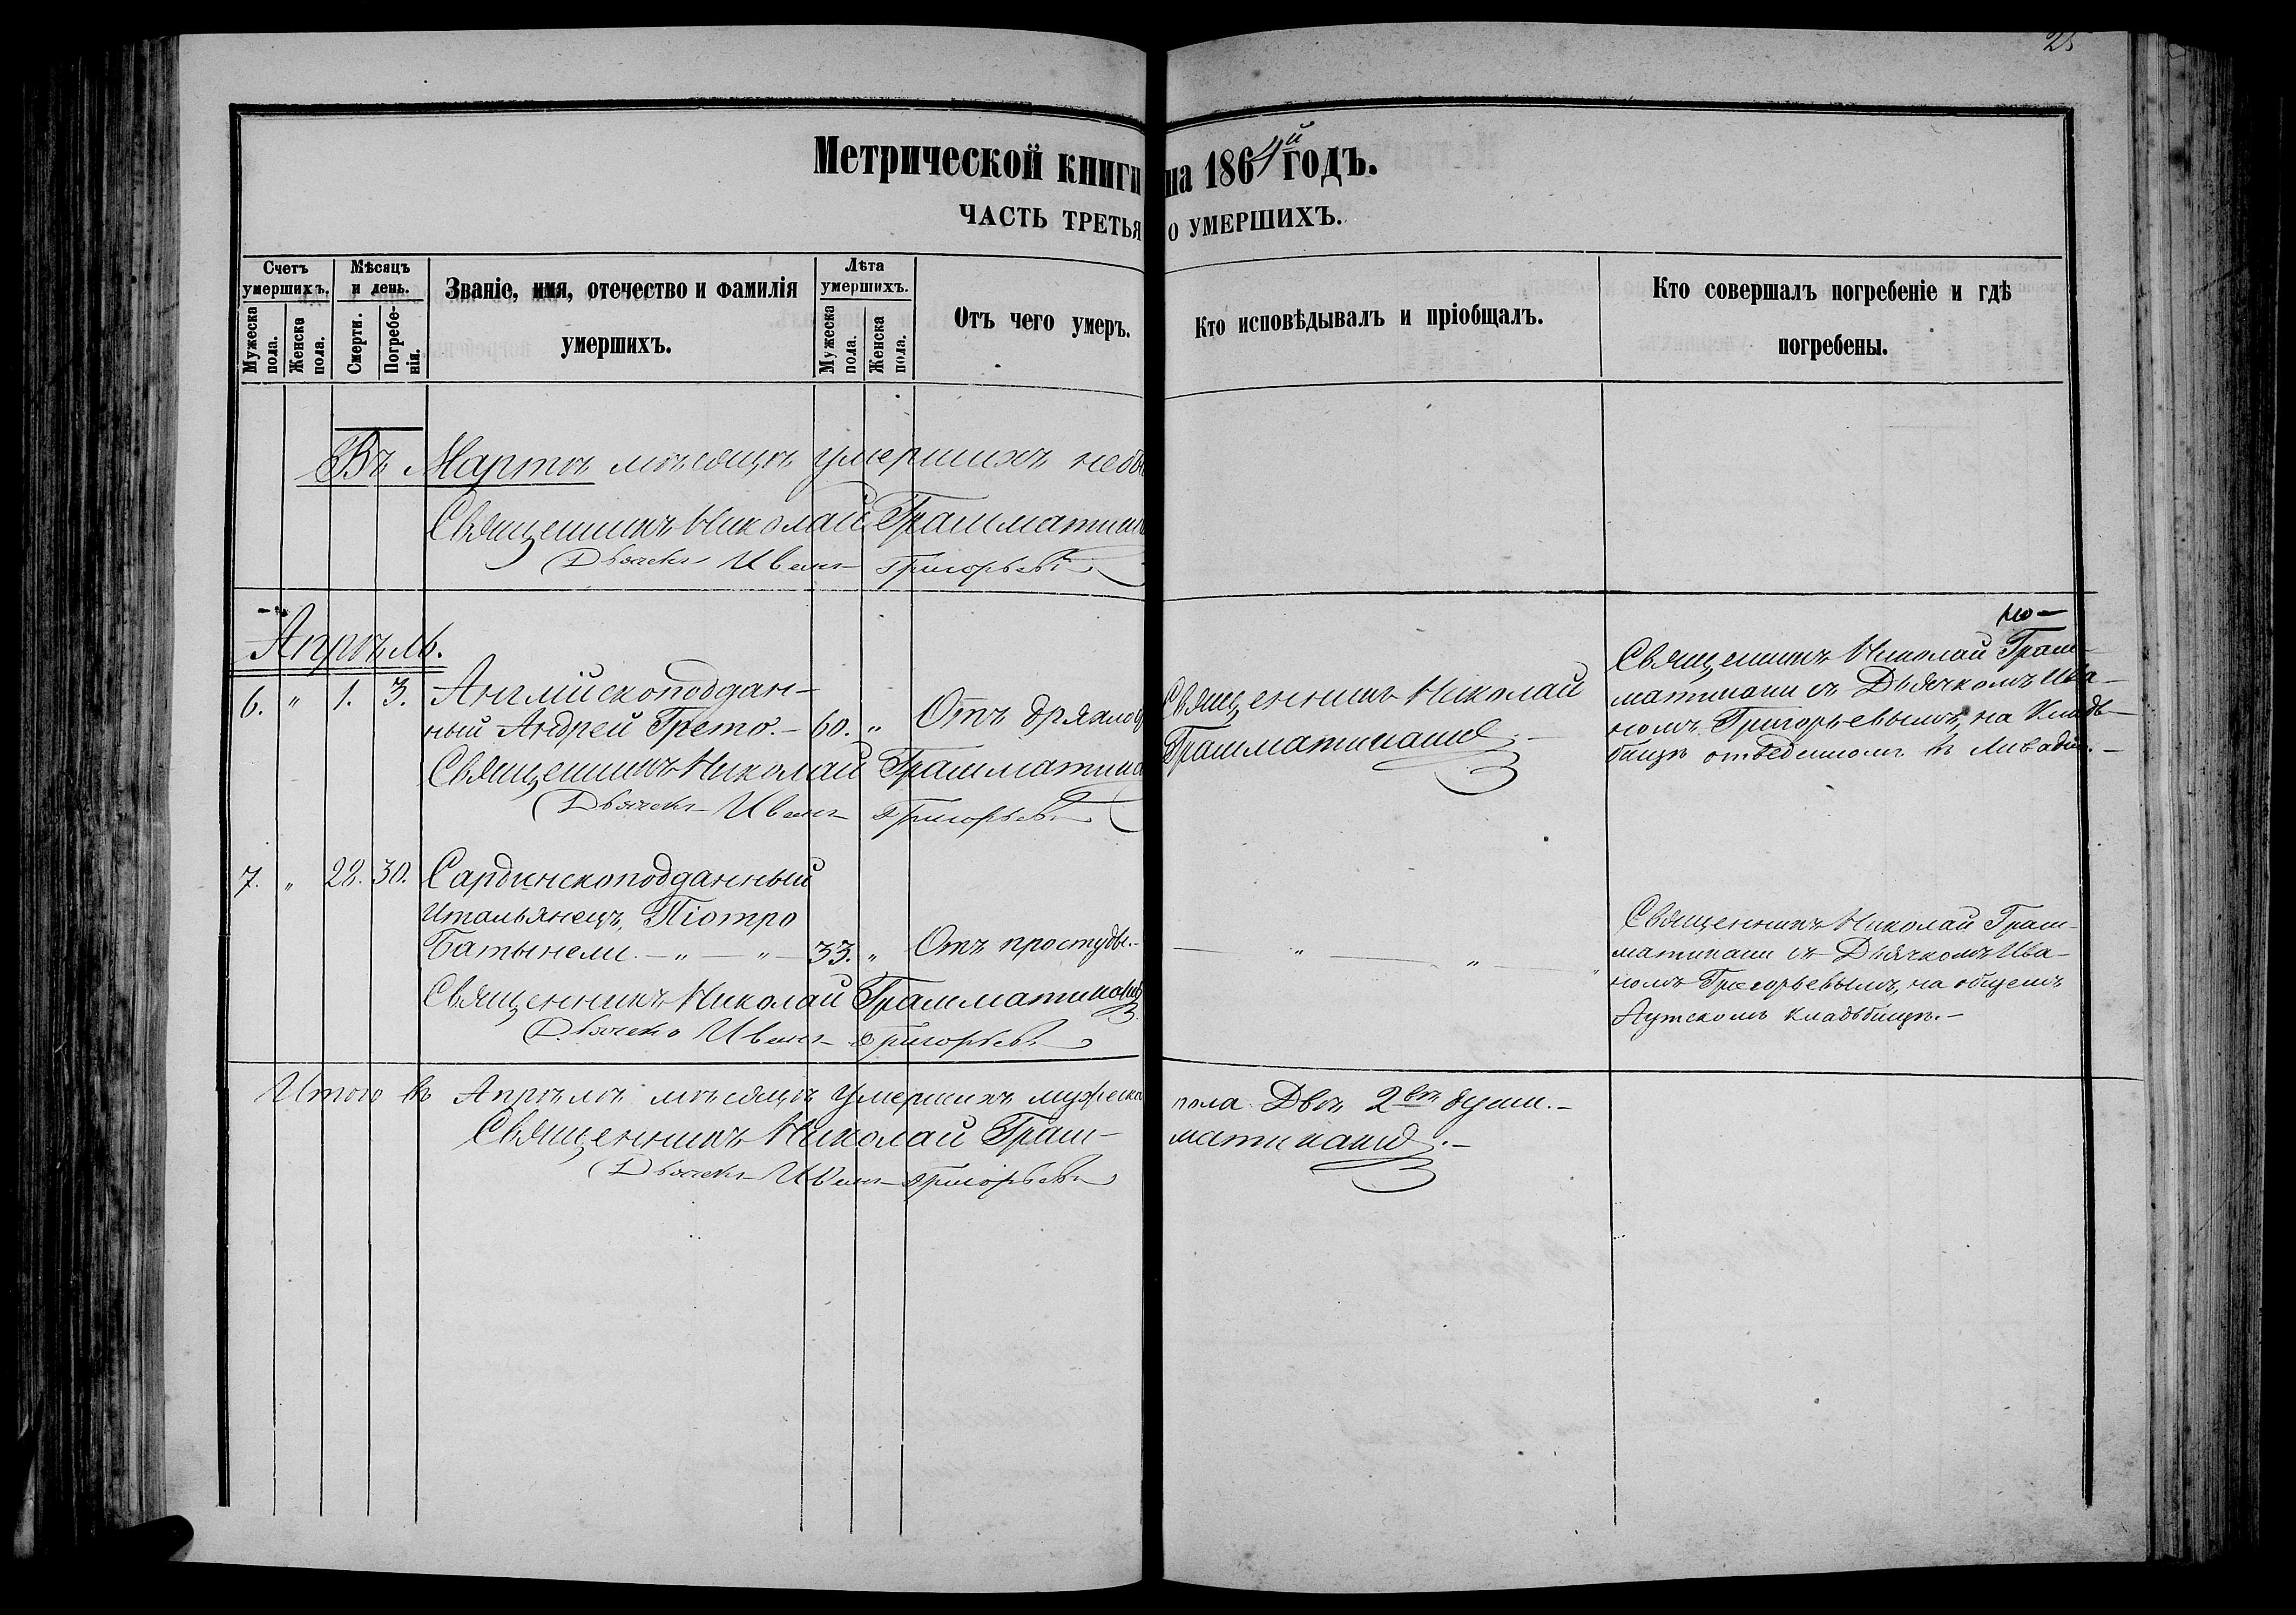 25
Метрической книги на 1864й годъ.
ЧАСТЬ ТРЕТЬЯ О УМЕРШИХЪ.
Счетъ умершихъ.
Мужеска пола.
Женска пола.
Мѣсяцъ и день.
Смерти.
Погребенія.
Званіе, имя, отечество и фамилія
умершихъ.
Лѣта умершихъ.
Мужеска пола.
Женска пола.
Отъ чего умеръ.
Кто исповѣдывалъ и пріобщалъ.
Кто совершалъ погребеніе и гдѣ
погребены.
Въ Мартѣ мѣсяцѣ умершихъ небы
Священникъ Николай Грамматика
Дьячекъ Иванъ Григорьевъ
Апрѣль.
6. " 1. 3. Англійскоподдан-
ный Андрей Грето. - 60. " Отъ дряхлос
Священникъ Николай
Грамматикани. -
Священникъ Николай Грам-
матикани съ Дьячкомъ Ива-
номъ Григорьевымъ, на Кладъ-
бищѣ отведенномъ въ Ливадіи. -
Священникъ Николай Граммати
Дьячекъ Иванъ Григорьевъ
7. " 28. 30. Сардинскоподданный
Итальянецъ, Піотро
Батынели. - " - " - 33. " Отъ простуды. -
- " - " - "
Священникъ Николай Грам-
матикани съ Дьячкомъ Ива-
номъ Григорьевымъ, на общемъ
Аутскомъ кладьбищѣ. -
Священникъ Николай Грамматикани
Дьячекъ Иванъ Григорьевъ
Итого въ Апрѣлѣ мѣсяцѣ умершихъ мужеска пола Двѣ 2вѣ души. -
Священникъ Николай Грам- матикани. -
Дьячекъ Иванъ Григорьевъ